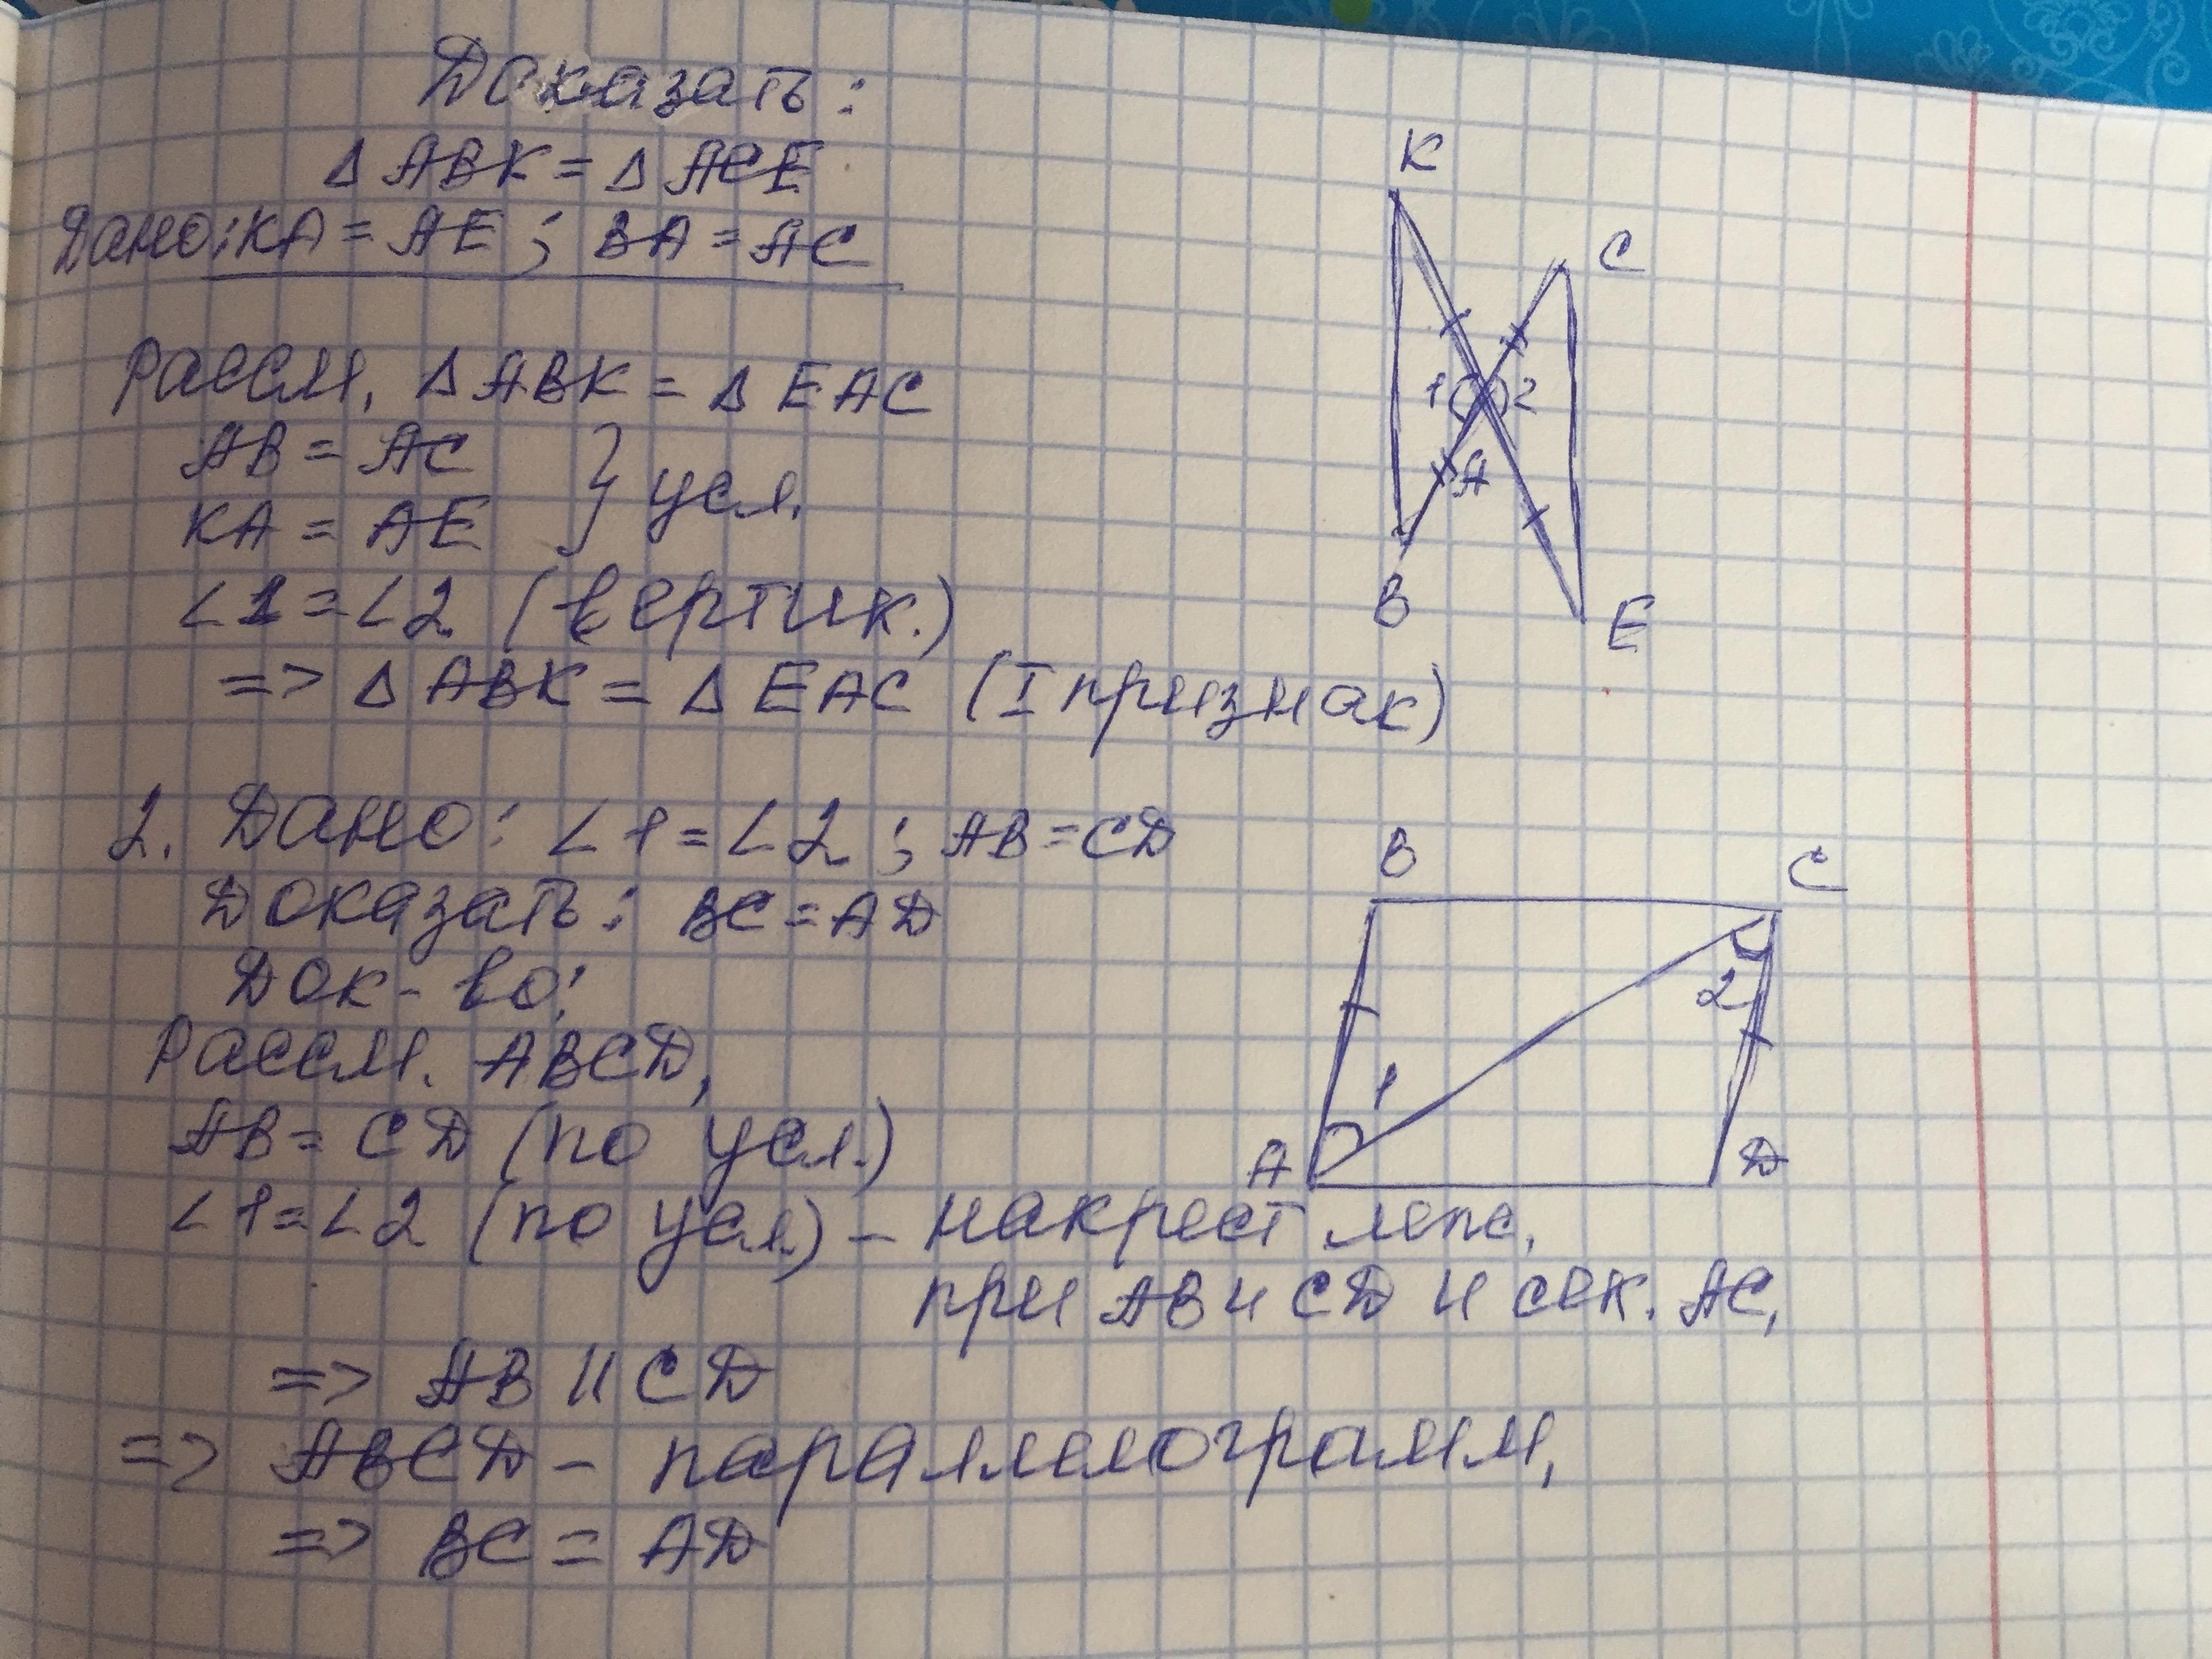 Доказать:
Δ ABK = Δ ACE
Дано: KA = AE; BA = AC
Рассм. Δ ABK = Δ EAC
AB = AC
KA = AE } усл.
∠1 = ∠2 (вертик.)
=> Δ ABK = Δ EAC (I признак)
K
C
1 2
A
B
E
2. Дано: ∠1 = ∠2; AB = CD
Доказать: BC = AD
Док-во:
Рассм. ABCD,
AB = CD (по усл.)
∠1 = ∠2 (по усл.) – накрест леж.
при AB и CD и сек. AC,
=> AB || CD
=> ABCD – параллелограмм,
=> BC = AD
B
C
2
1
A
D